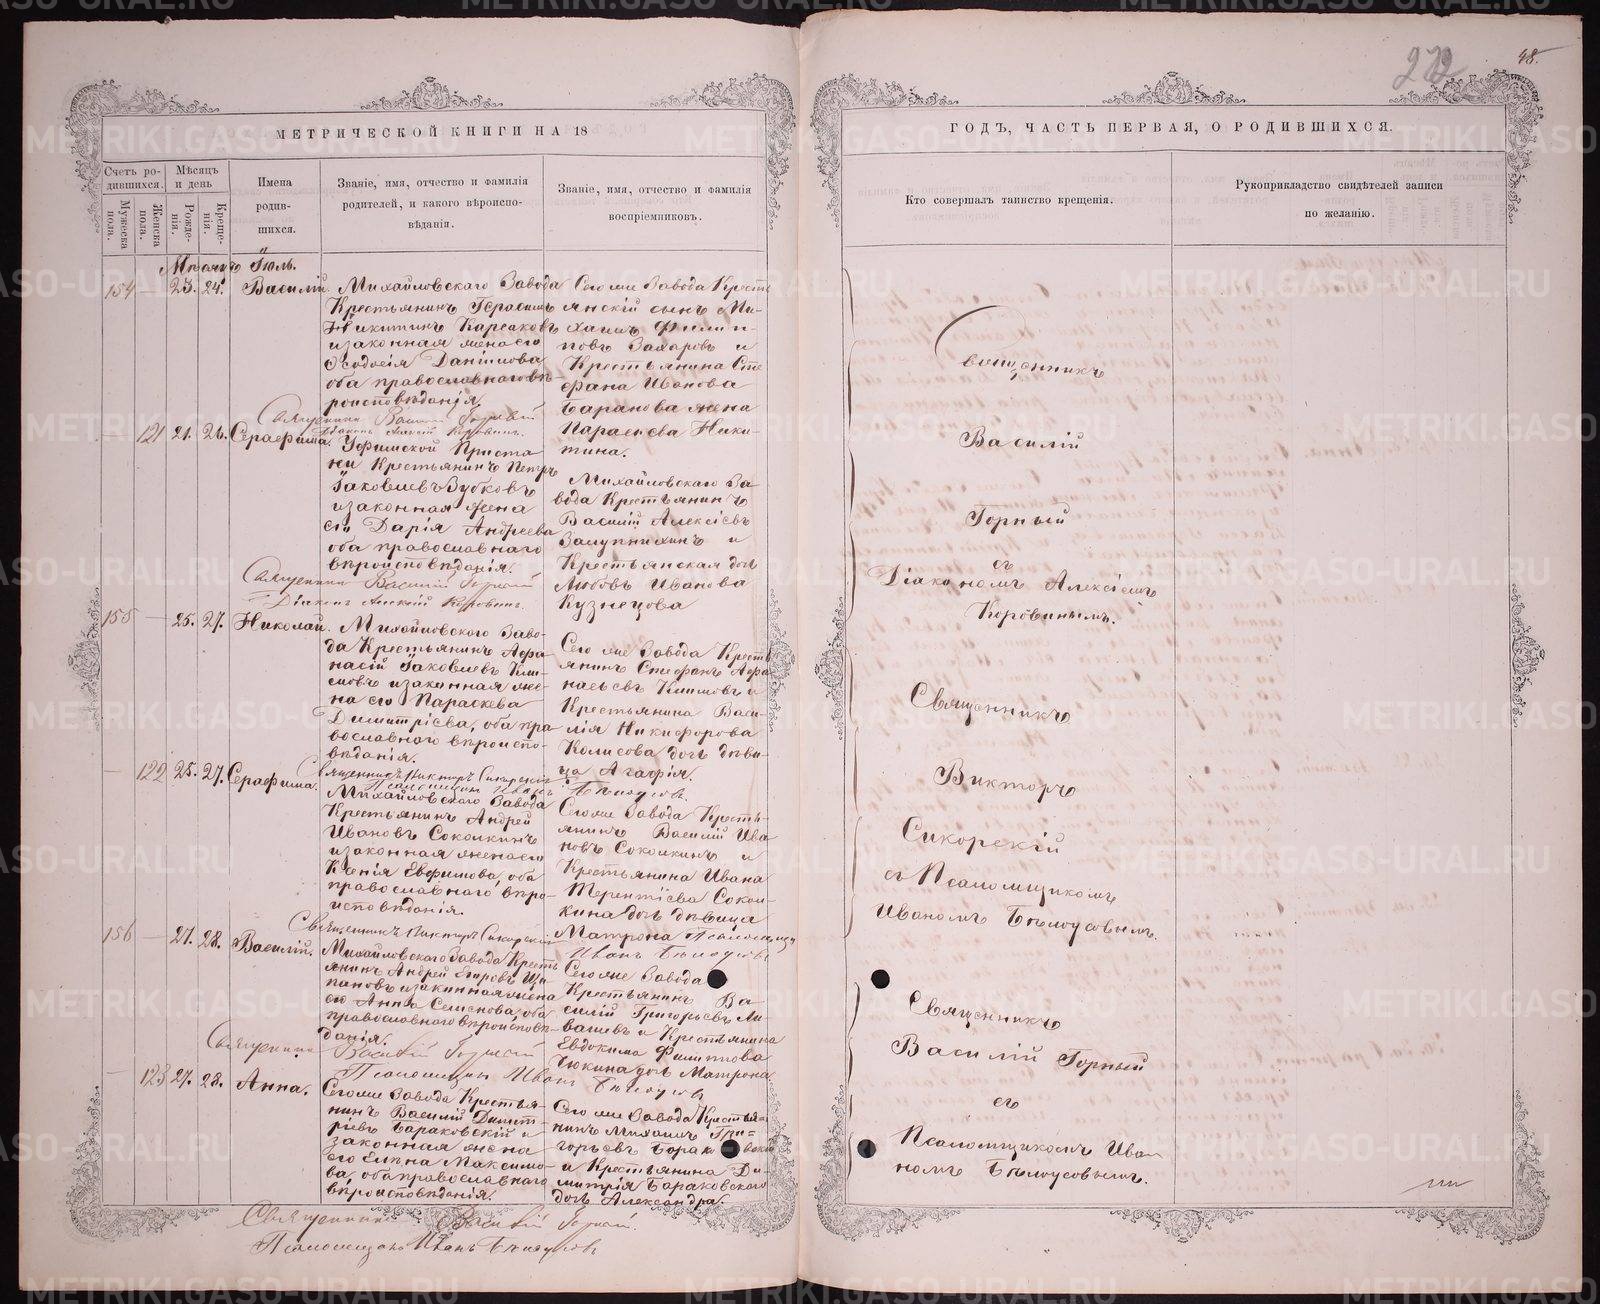 272
48.
МЕТРИЧЕСКОЙ КНИГИ НА 18
ГОДЪ, ЧАСТЬ ПЕРВАЯ, О РОДИВШИХСЯ.
Счетъ ро-
дившихся.
Мужеска пола.
Женска пола.
Мѣсяцъ
и день
Рожде-
нія.
Креще-
нія.
Имена
родив-
шихся.
Званіе, имя, отчество и фамилія
родителей, и какого вѣроиспо-
вѣданія.
Званіе, имя, отчество и фамилія
воспріемниковъ.
Кто совершалъ таинство крещенія.
Рукоприкладство свидѣтелей записи
по желанію.
Іюль.
154 — 23. 24. Василій.
Михайловскаго Завода
Крестьянинъ Герасимъ
Никитинъ Карсаковъ
и законная жена его
Ѳеодосія Даніилова
оба православнаго вѣ-
роисповѣданія.
Священникъ Василій Горный
Діаконъ Алексій Коровинъ.
Сего же Завода Кресть
янскій сынъ Ми-
хаилъ Филип-
повъ Захаровъ и
Крестьянина Сте
фана Иванова
Баранова жена
Параскева Ники-
тина.
— 121 21. 26. Серафима.
Уфимской Приста
ни Крестьянинъ Петръ
Іаковлевъ Зубковъ
и законная жена
его Дарія Андреева
оба православнаго
вѣроисповѣданія.
Священникъ Василій Горный
Діаконъ Алексій Коровинъ.
Михайловскаго За
вода Крестьянинъ
Василій Алексіевъ
и
Крестьянская дочь
Любовь Иванова
Кузнецова
155 — 25. 27. Николай.
Михайловскаго Заво-
да Крестьянинъ Аѳа-
насій Іаковлевъ Кли-
мовъ и законная же-
на его Параскева
Димитріева, оба пра-
вославнаго вѣроиспо-
вѣданія.
Священникъ Викторъ Сикорскій
Псаломщикъ Иванъ Бѣлоусовъ.
Сего же Завода Кресть
янинъ Стефанъ Аѳа
насьевъ Климовъ и
Крестьянина Васи-
лія Никифорова
Колисова дочь дѣви-
ца Агафія.
— 122 25. 27. Серафима.
Михайловскаго Завода
Крестьянинъ Андрей
Ивановъ Соколкинъ
и законная жена его
Ксенія Евфимова, оба
православнаго вѣро-
исповѣданія.
Священникъ Викторъ Сикорскій
Сего же Завода Кресть-
янинъ Василій Ива
новъ Соколкинъ и
Крестьянина Ивана
Терентіева Сокол-
кина дочь дѣвица
Матрона Псаломщикъ
Иванъ Бѣлоусовъ
156 — 27. 28. Василій.
Михайловскаго Завода Кресть
янинъ Андрей Егоровъ
и законная жена
его Анна Семенова, оба
православнаго вѣроисповѣ-
данія.
Священникъ Василій Горный
Псаломщикъ Иванъ Бѣлоусовъ
Сего же Завода
Крестьянинъ Ва
силій Григорьевъ
и Крестьянина
Евдокима Филиппова
дочь Матрона
— 123 27. 28. Анна.
Сего же Завода Крестья-
нинъ Василій Димит-
ріевъ Бараковскій и
законная жена
его Елена Максимо-
ва, оба православнаго
вѣроисповѣданія.
Сего же Завода Крестья-
нинъ Михаилъ Гри-
горьевъ Бараковскій
и Крестьянина Ди-
митрія Бараковскаго
дочь Александра.
Священникъ Василій Горный.
Псаломщикъ Иванъ Бѣлоусовъ
Священникъ
Василій
Горный
съ
Діакономъ Алексіемъ
Коровинымъ.
Священникъ
Викторъ
Сикорскій
съ Псаломщикомъ
Иваномъ Бѣлоусовымъ.
Священникъ
Василій Горный
съ
Псаломщикомъ Ива
номъ Бѣлоусовымъ.
METRIKI.GASO-URAL.RU